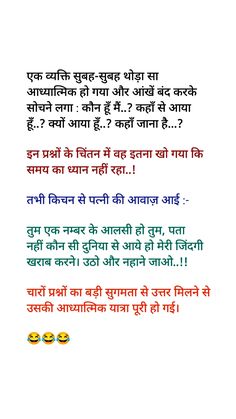 एक व्यक्ति सुबह-सुबह थोड़ा सा
आध्यात्मिक हो गया और आंखें बंद करके
सोचने लगा : कौन हूँ मैं..? कहाँ से आया
हूँ..? क्यों आया हूँ..? कहाँ जाना है...?
इन प्रश्नों के चिंतन में वह इतना खो गया कि
समय का ध्यान नहीं रहा..!
तभी किचन से पत्नी की आवाज़ आई :-
तुम एक नम्बर के आलसी हो तुम, पता
नहीं कौन सी दुनिया से आये हो मेरी जिंदगी
खराब करने। उठो और नहाने जाओ..!!
चारों प्रश्नों का बड़ी सुगमता से उत्तर मिलने से
उसकी आध्यात्मिक यात्रा पूरी हो गई।
😂😂😂